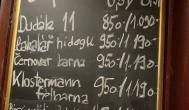 0,3l 0,5l
Dudák 11 850.-/1.090.-
Bakalář hidegk. 950.-/1.190.-
Černovar barna 950.-/1.190-
Klostermann félbarna 950.-/1.190-